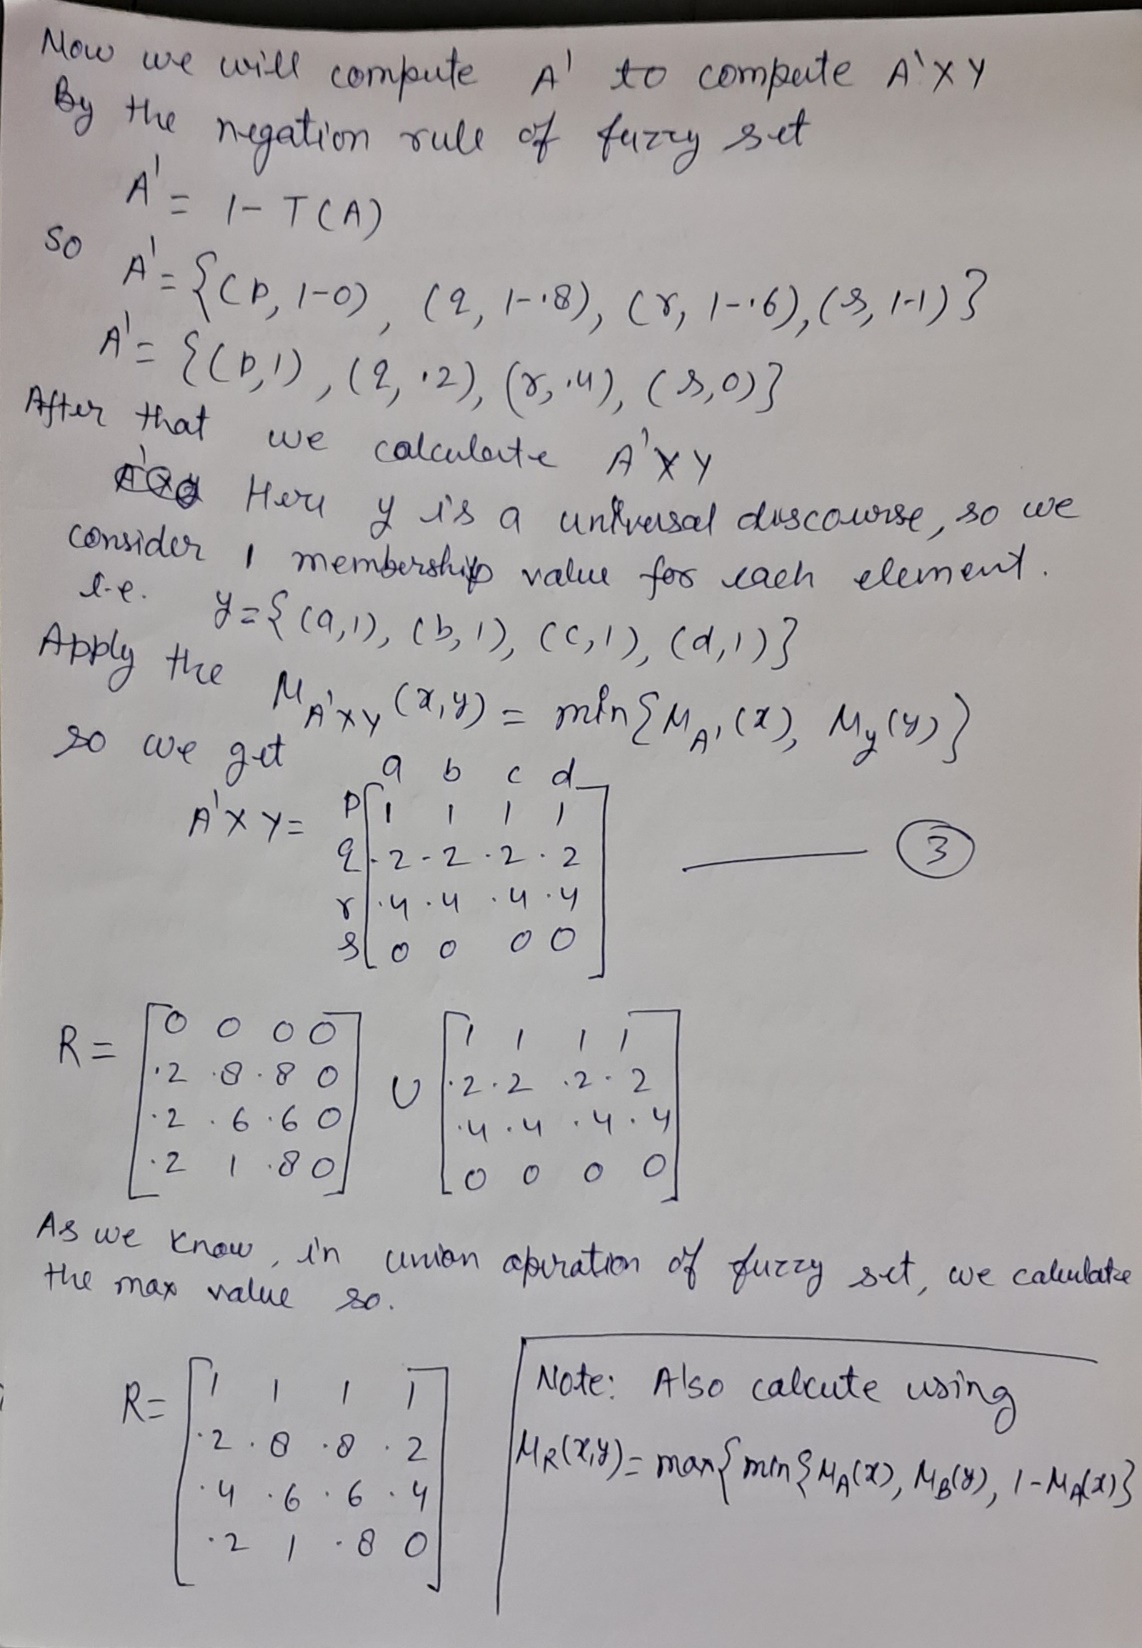 Now we will compute A' to compute A'XY
By the negation rule of fuzzy set
A' = 1-T(A)
So A' = {(p, 1-0), (q, 1-.8), (r, 1-.6), (s, 1-1)}
A' = {(p,1), (q, .2), (r, .4), (s,0)}
After that we calculate A'XY
Here y is a universal discourse, so we
consider 1 membership value for each element.
i.e. y={(a,1), (b,1), (c,1), (d,1)}
Apply the M_A'XY (x,y) = min{M_A'(x), M_y(y)}
so we get
a b c d
A'XY= p 1 1 1 1
q .2 .2 .2 .2
r .4 .4 .4 .4
s 0 0 0 0
3
R= [0 0 0 0] U [1 1 1 1]
[.2 .8 .8 0] [.2 .2 .2 .2]
[.2 .6 .6 0] [.4 .4 .4 .4]
[.2 1 .8 0] [0 0 0 0]
As we know, in union operation of fuzzy set, we calculate
the max value so.
R= [1 1 1 1]
[.2 .8 .8 .2]
[.4 .6 .6 .4]
[.2 1 .8 0]
Note: Also calcute using
M_R(x,y)= max{min{M_A(x), M_B(y), 1-M_A(x)}